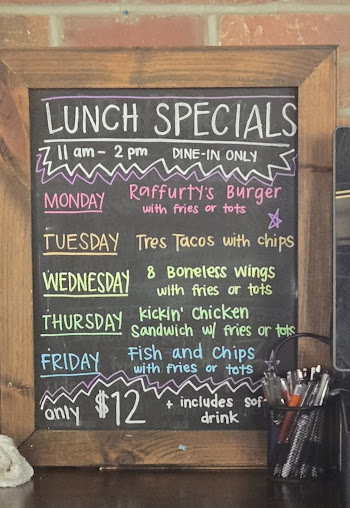 LUNCH SPECIALS
11 am - 2 pm DINE-IN ONLY
MONDAY Raffurty's Burger
with fries or tots
TUESDAY Tres Tacos with chips
WEDNESDAY 8 Boneless Wings
with fries or tots
THURSDAY Kickin' Chicken
Sandwich w/ fries or tots
FRIDAY Fish and Chips
with fries or tots
only $12 + includes sof
drink